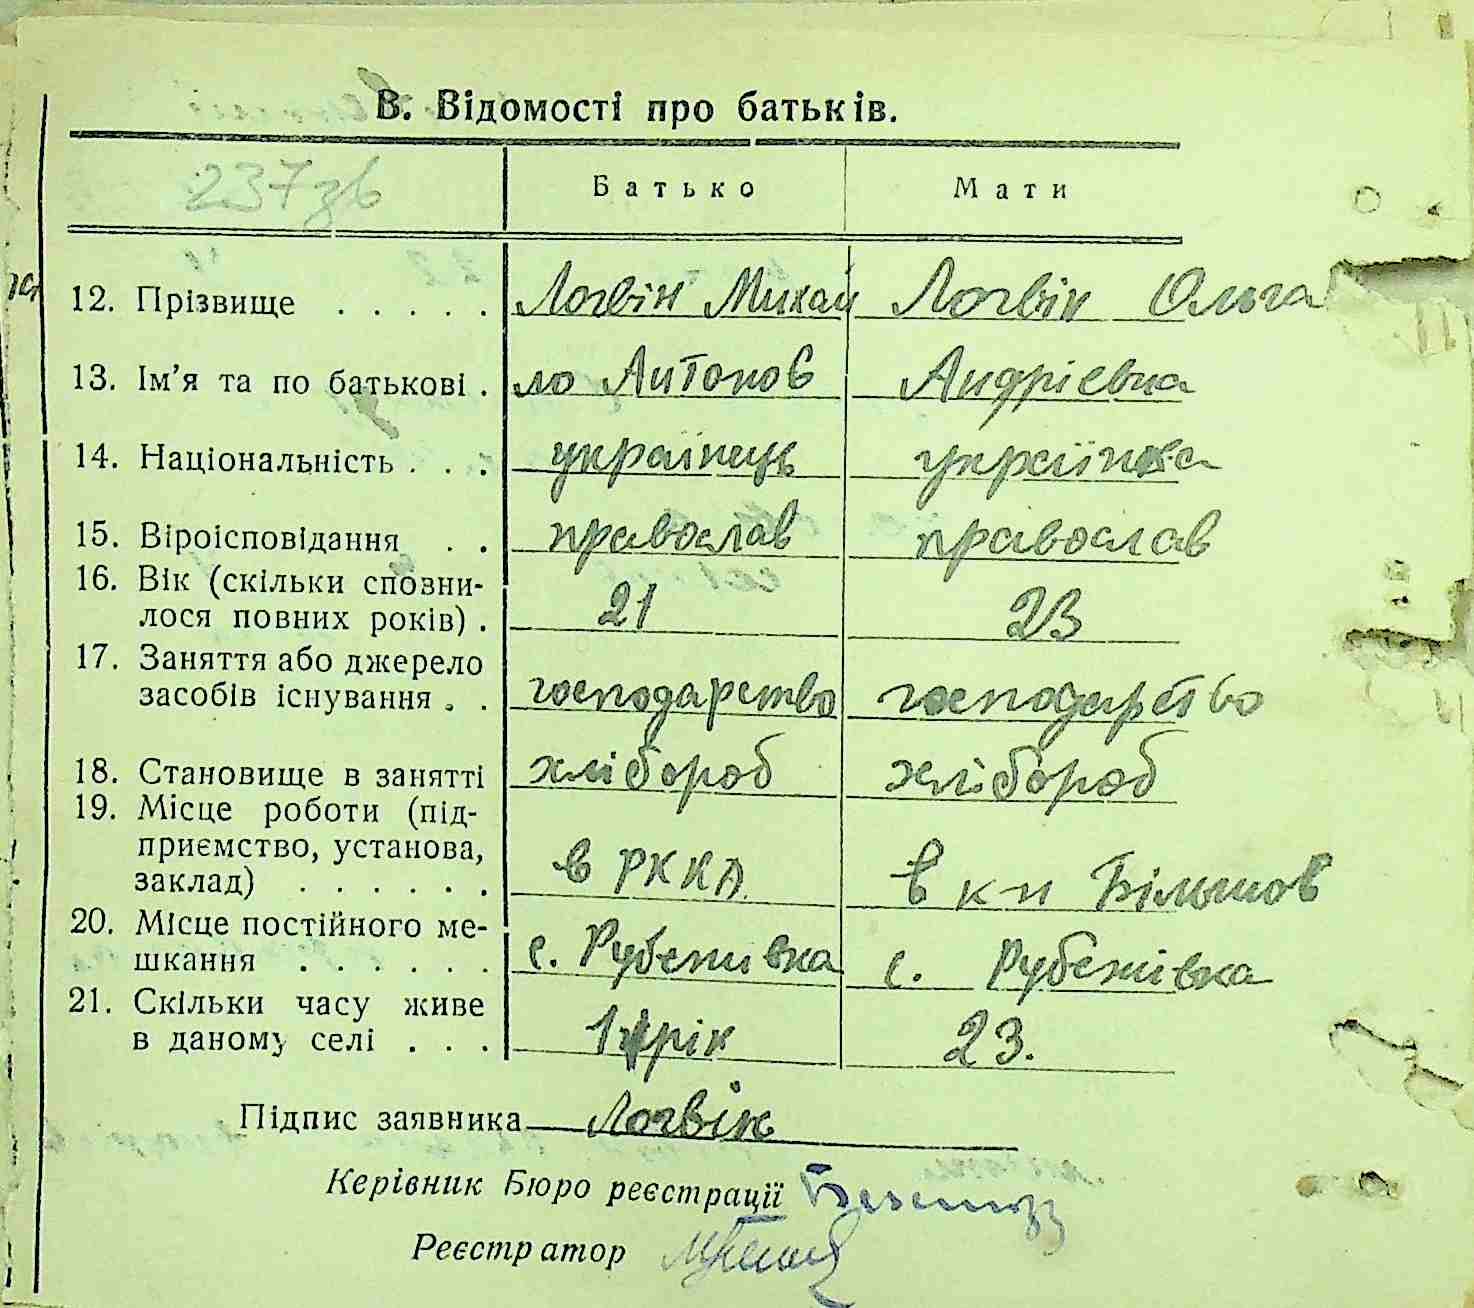 В. Відомості про батьків.
237зв
Батько Мати
12. Прізвище . . . . . Логвін Михай Логвін Ольга
13. Ім’я та по батькові . ло Антонов Андрієвна
14. Національність . . . українець українка
15. Віроісповідання . . православ православ
16. Вік (скільки сповни-
лося повних років) . 21 23
17. Заняття або джерело
засобів існування . . господарство господарство
18. Становище в занятті хлібороб хлібороб
19. Місце роботи (під-
приємство, установа,
заклад) . . . . . . в РККА. в к п Більшов
20. Місце постійного ме-
шкання . . . . . . с. Рубежівка с. Рубежівка
21. Скільки часу живе
в даному селі . . . 1 рік 23.
Підпис заявника Логвін
Керівник Бюро реєстрації
Реєстратор